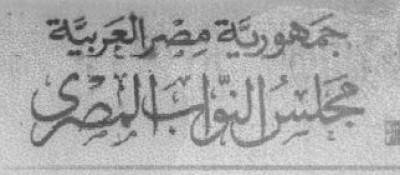 جَمهوريَّة مِصر العَربيَّة
مَجلسُ النوَّاب المَصرى